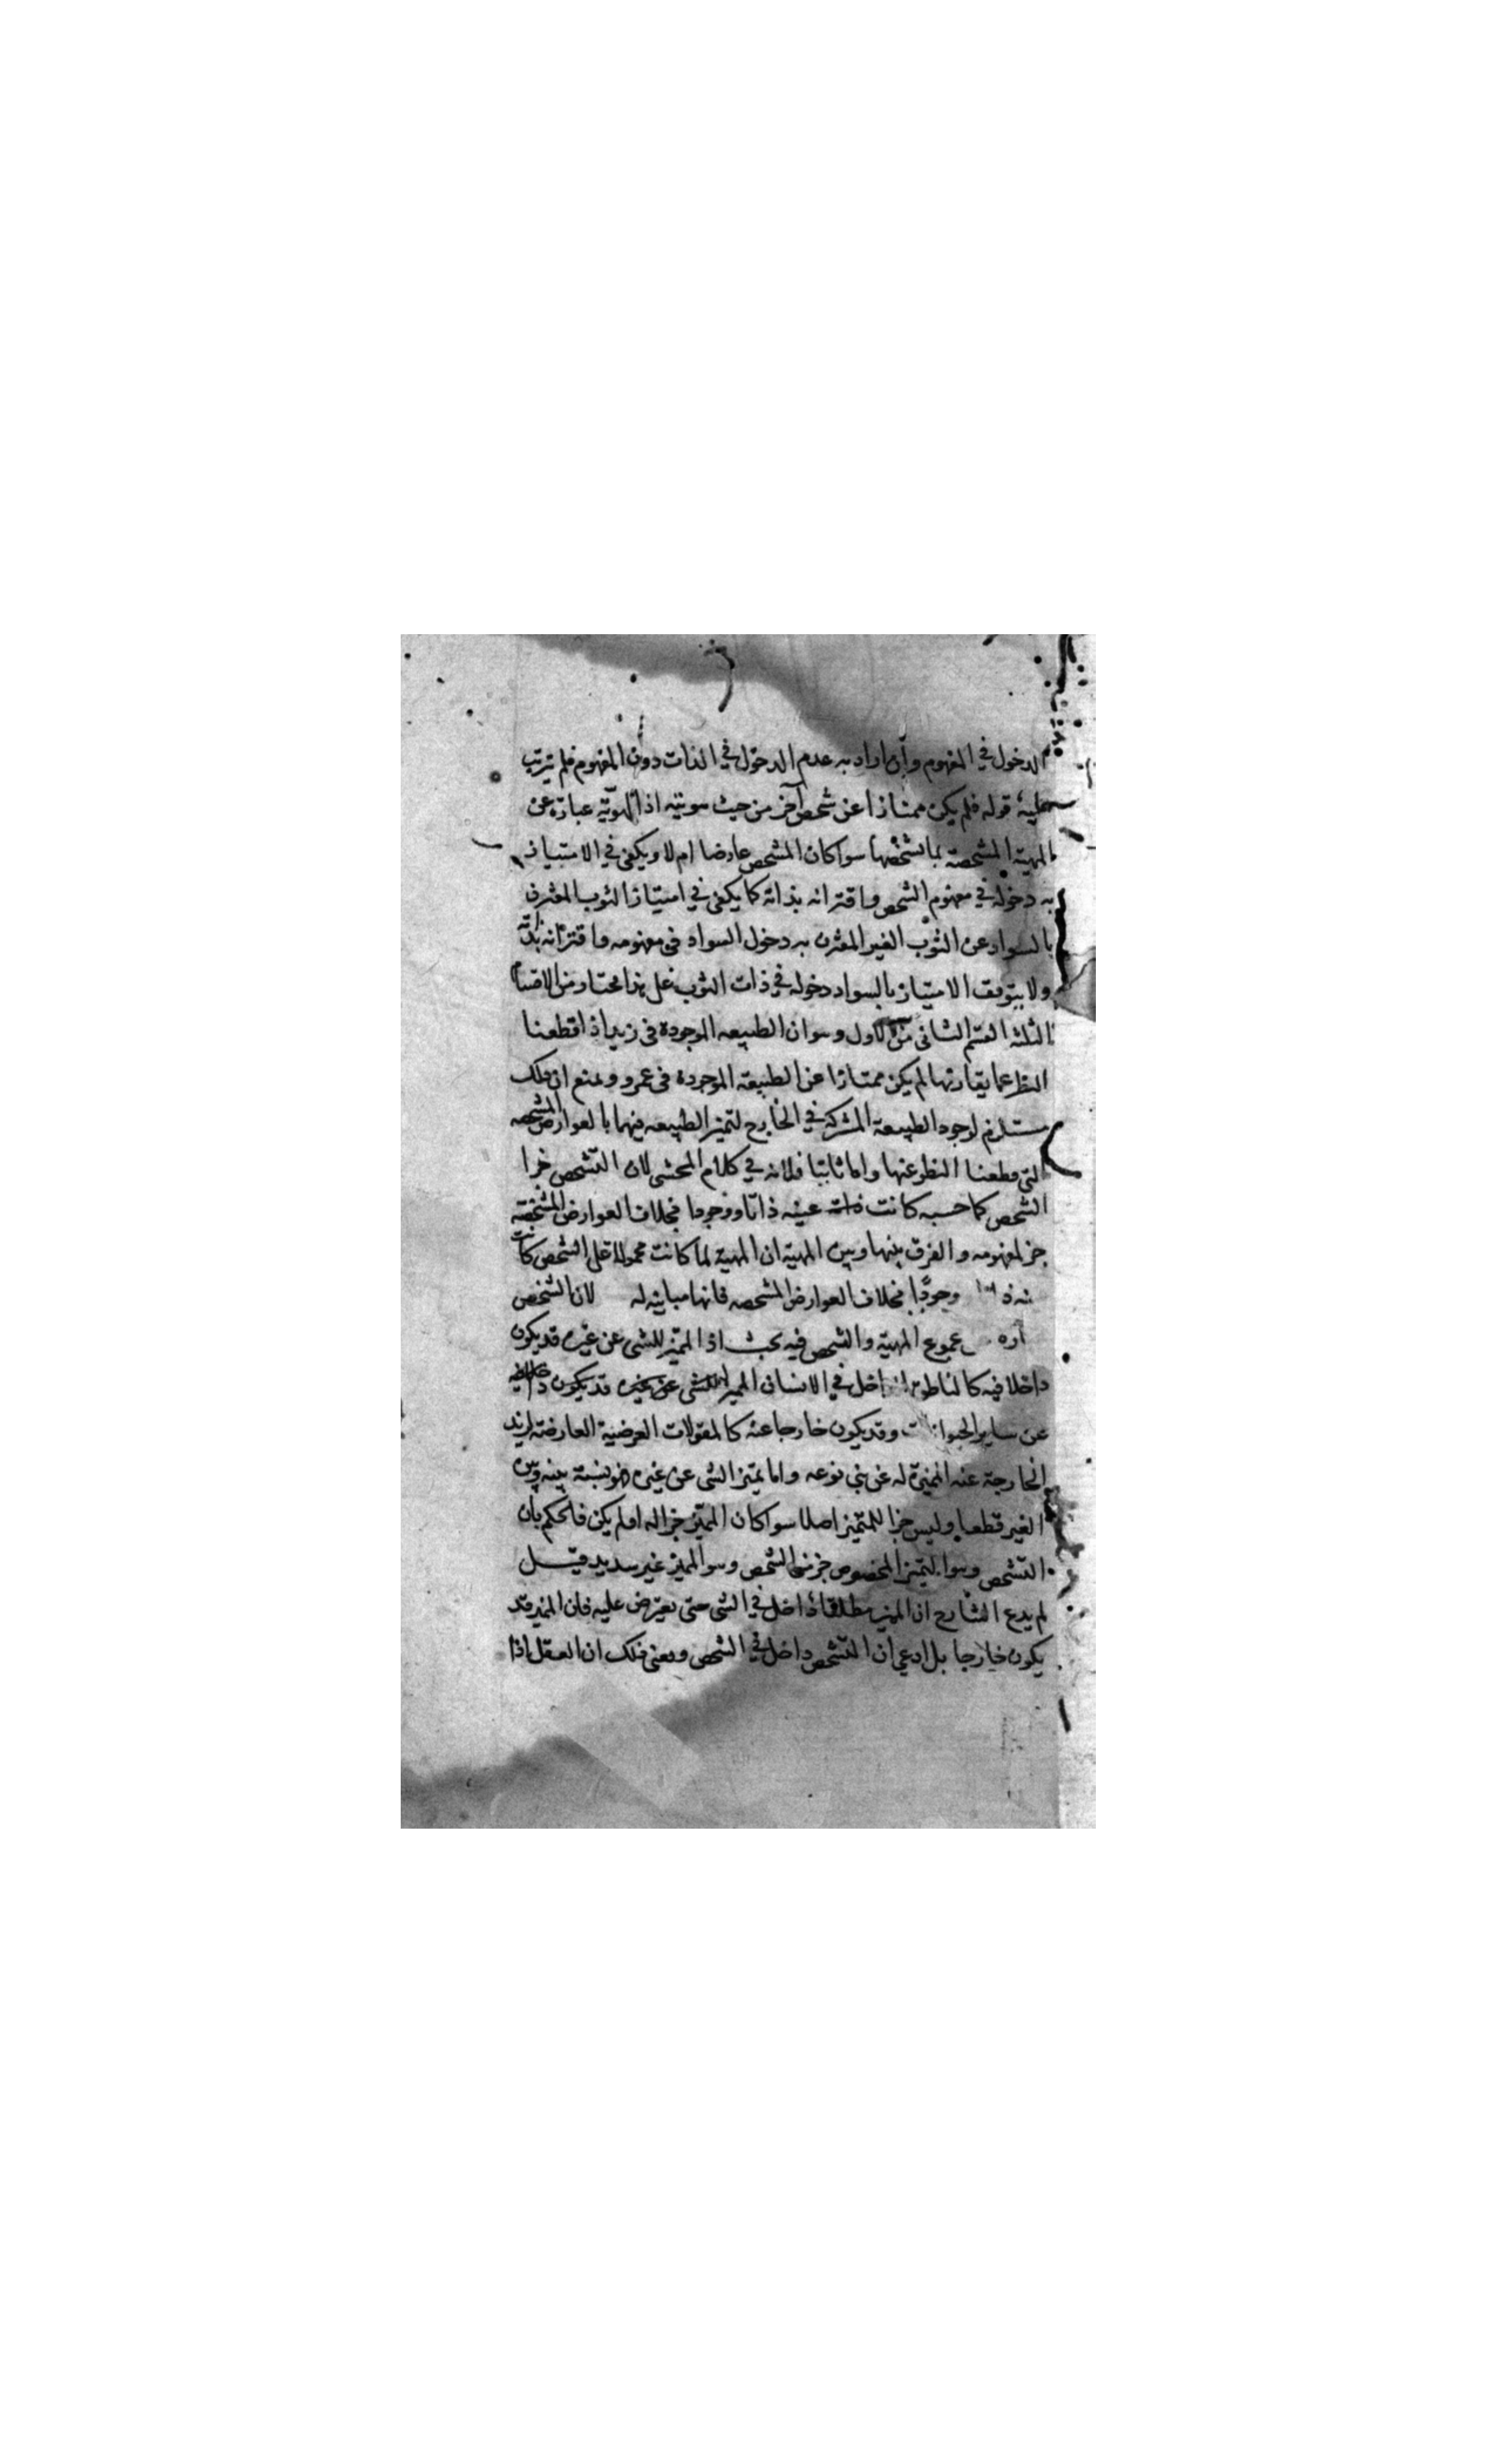 الدخول في المفهوم وان اراد به عدم الدخول في الذات دون المفهوم فلم يترتب
عليه قوله فلم يكن ممتازا عن شخص آخر من حيث هويته اذا الهويّة عبارة عن
المهية المشخصة بما تشخصها سوا كان المشخص عارضا ام لا ويكفي في الامتياز
به دخوله في مفهوم الشخص واقترانه بذاته كما يكفي في امتياز الثوب المقترن
بالسواد عن الثوب الغير المقترن به دخول السواد في مفهومه واقترانه بذاته
ولا يتوقف الامتياز بالسواد دخوله في ذات الثوب فعلى هذا مختار من الاقسام
الثلثه القسم الثاني من الاول وهو ان الطبيعه الموجودة في زيد اذا قطعنا
النظر عما يقارنها لم يكن ممتازا عن الطبيعة الموجودة في عمرو ونمنع ان ذلك
مستلزم لوجود الطبيعة المشتركة في الخارج لتميز الطبيعه فيهما بالعوارض المشخصه
التي قطعنا النظر عنها واما ثانيا فلانه في كلام المحشي لان التشخص جزا
الشخص كما حسبه كانت عينه ذاتا ووجودا بخلاف العوارض المشخصة
جز لمفهومه والفرق بينها وبين المهية ان المهية لما كانت محمولة على الشخص كانت
وجودًا بخلاف العوارض المشخصه فانها مباينه له لان الشخص
المهية والشخص فيه بحث اذ المميّز للشي عن غيره قد يكون
داخلا فيه كالناطق داخل في الانسان المميز للشي عن غيره قد يكون
عن ساير الحيوانات وقد يكون خارجا عنه كالمقولات العرضية العارضة لزيد
الخارجة عنه المميزة له عن بني نوعه واما تميّز الشي عن غيره فهو نسبة بينه وبين
الغير قطعا وليس جزا للمتميز اصلا سوا كان المميّز جزا له او لم يكن فالحكم بان
التشخص وهو التميز المخصوص جز من الشخص وهو المميز غير سديد قيل
لم يدع الشارح ان المميز مطلقا داخل في الشي حتى يعترض عليه فان المميز قد
يكون خارجا بل ادعى ان التشخص داخل في الشخص ومعنى ذلك ان العقل اذا